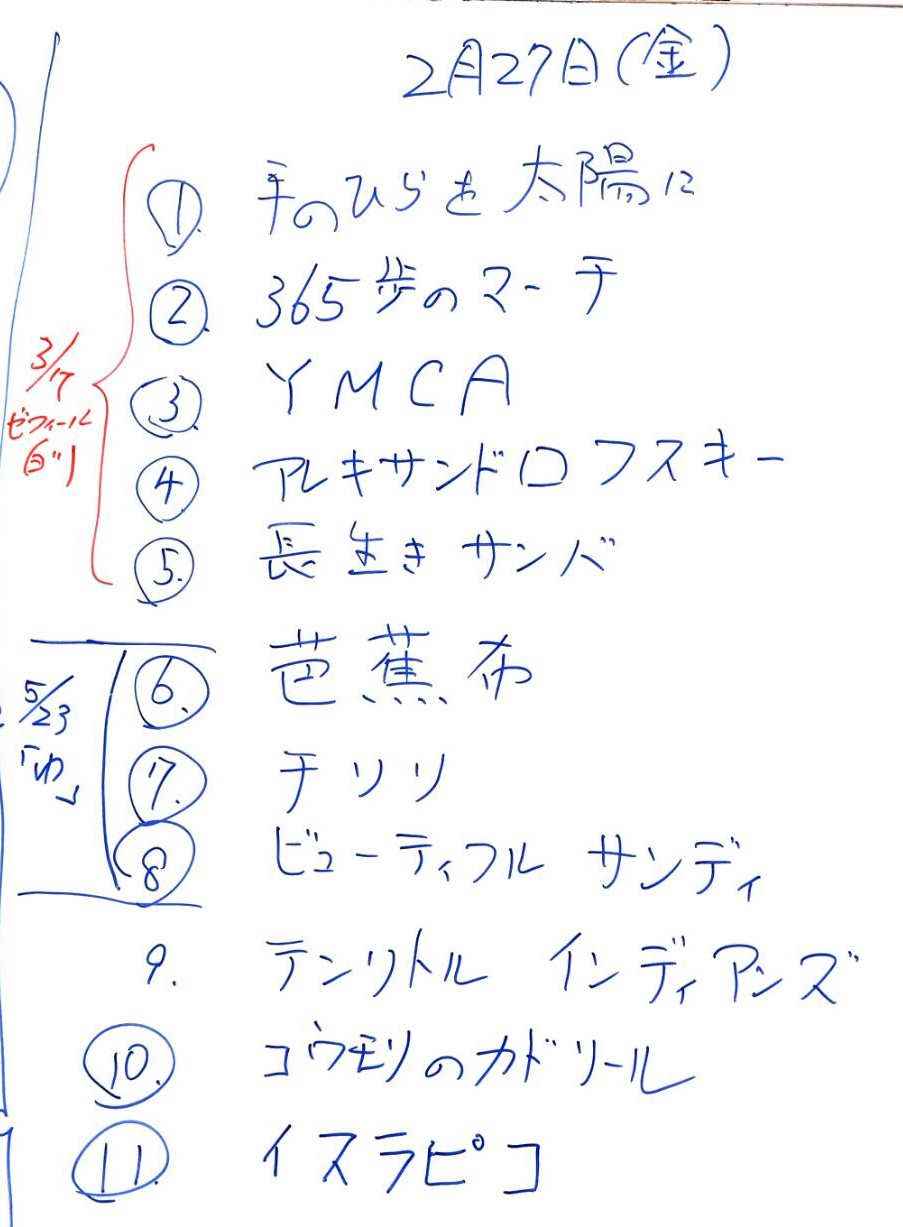 2月27日(金)
① 手のひらを太陽に
② 365歩のマーチ
③ YMCA
④ アレキサンドロフスキー
⑤ 長生きサンバ
3/17
ゼフィール
⑥ 芭蕉布
⑦ チリリ
⑧ ビューティフル サンディ
5/23
「ゆ」
9. テンリトル インディアンズ
⑩ コウモリのカドリール
⑪ イスラピコ